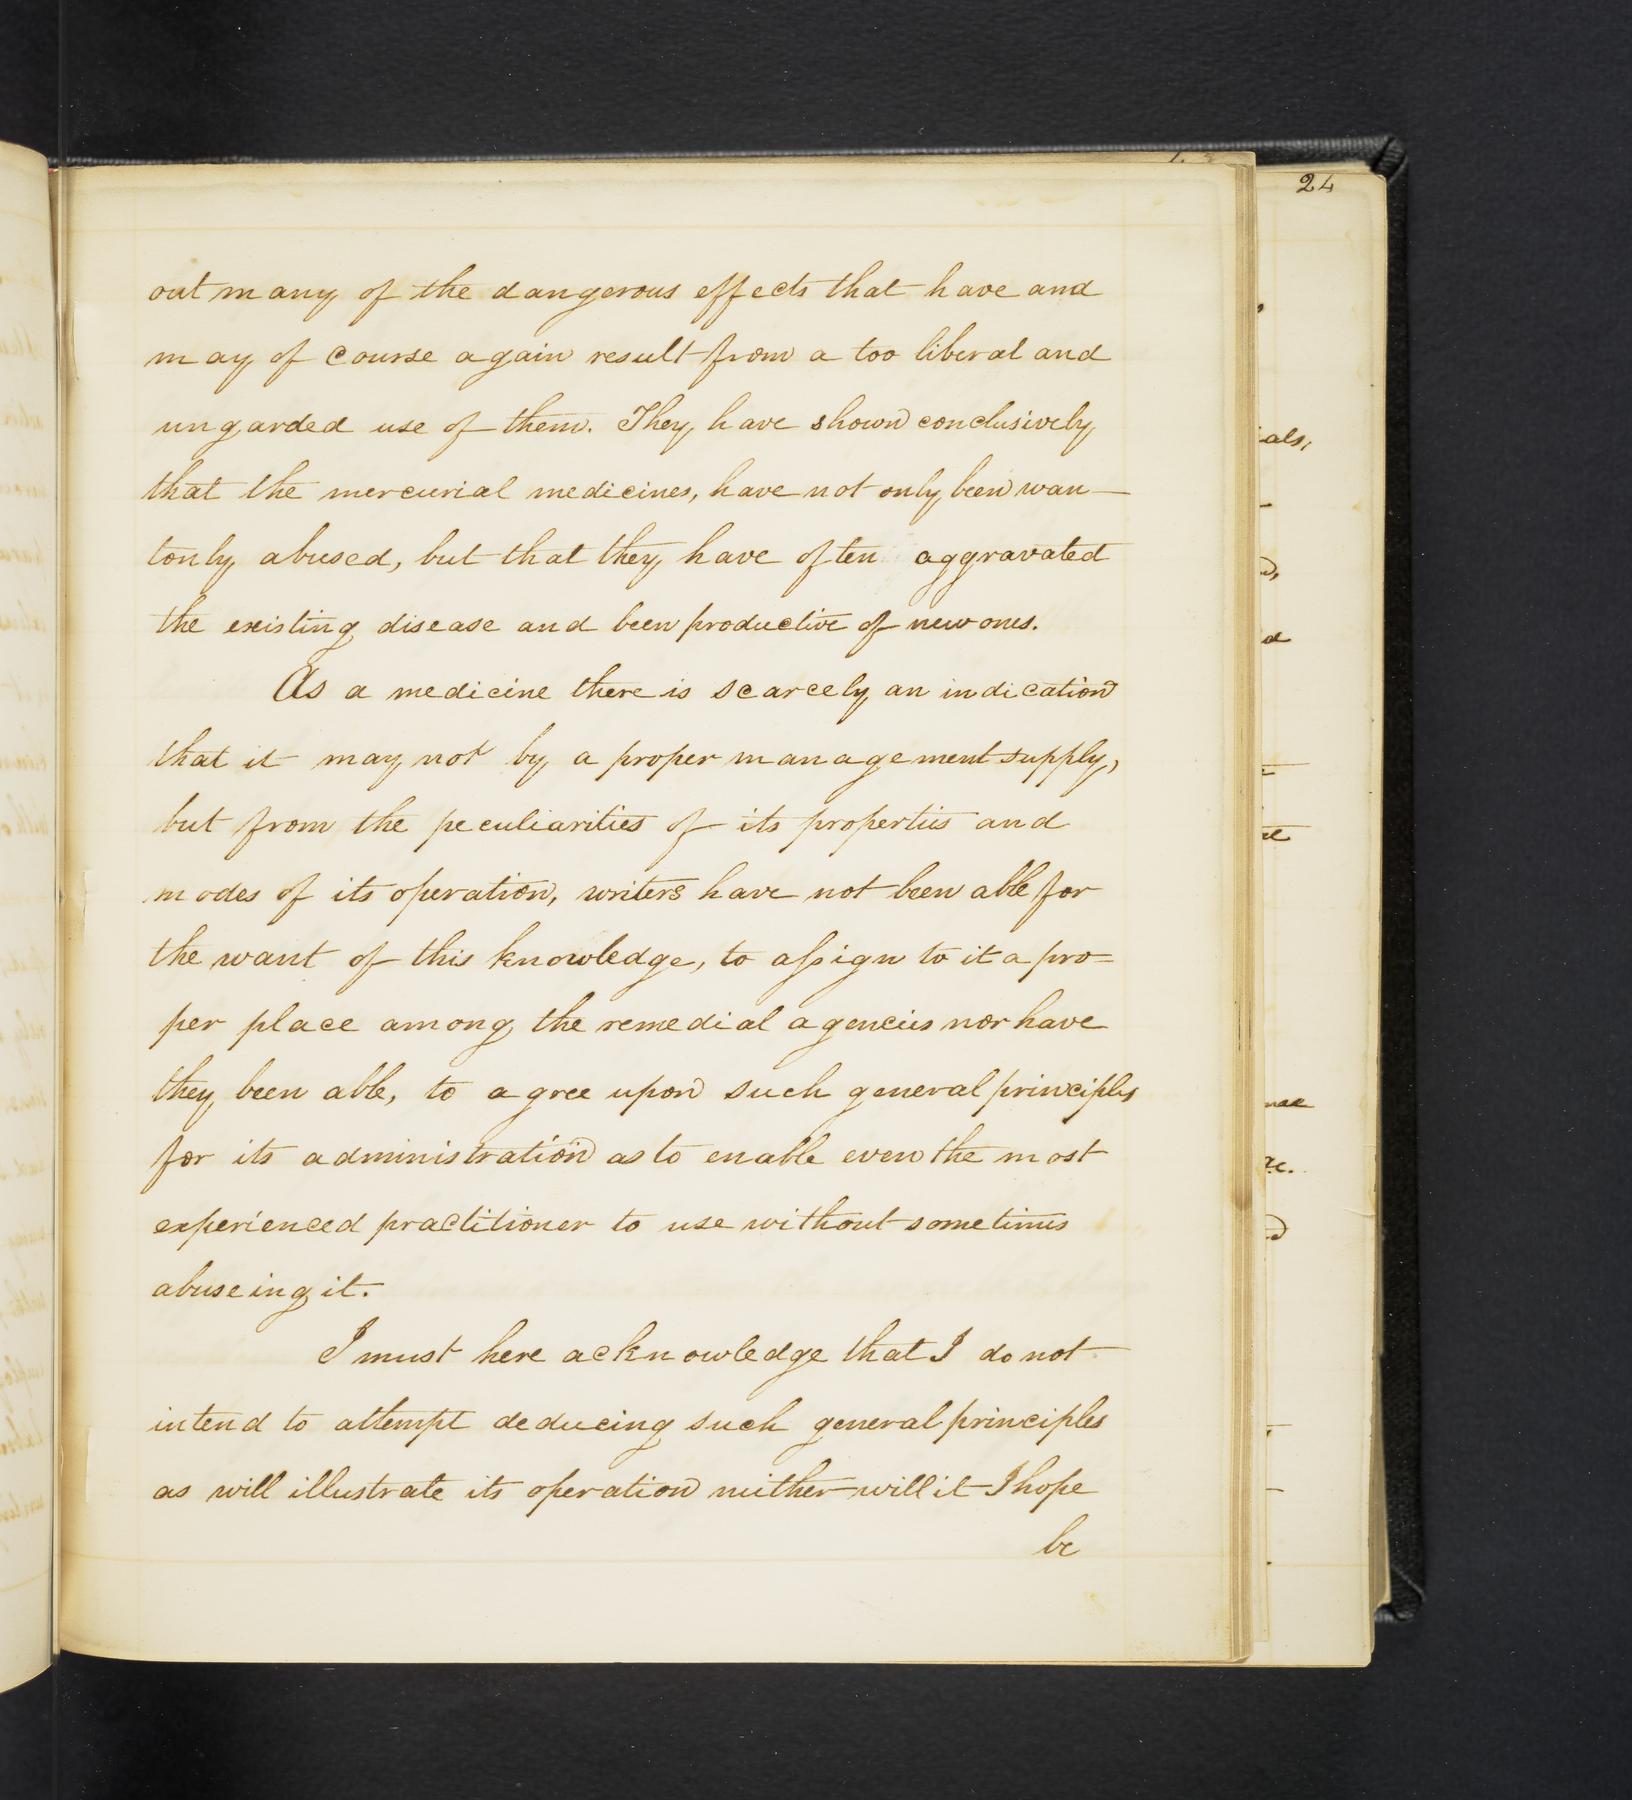 24
out many of the dangerous effects that have and
may of course again result from a too liberal and
ungarded use of them. They have shown conclusively
that the mercurial medicines, have not only been wan-
tonly abused, but that they have often aggravated
the existing disease and been productive of new ones.
As a medicine there is scarcely an indication
that it may not by a proper management supply,
but from the peculiarities of its properties and
modes of its operation, writers have not been able for
the want of this knowledge, to assign to it a pro=
per place among the remedial agencies nor have
they been able, to agree upon such general principles
for its administration as to enable even the most
experienced practitioner to use without sometimes
abuseing it.
I must here acknowledge that I do not
intend to attempt deducing such general principles
as will illustrate its operation neither will it I hope
be